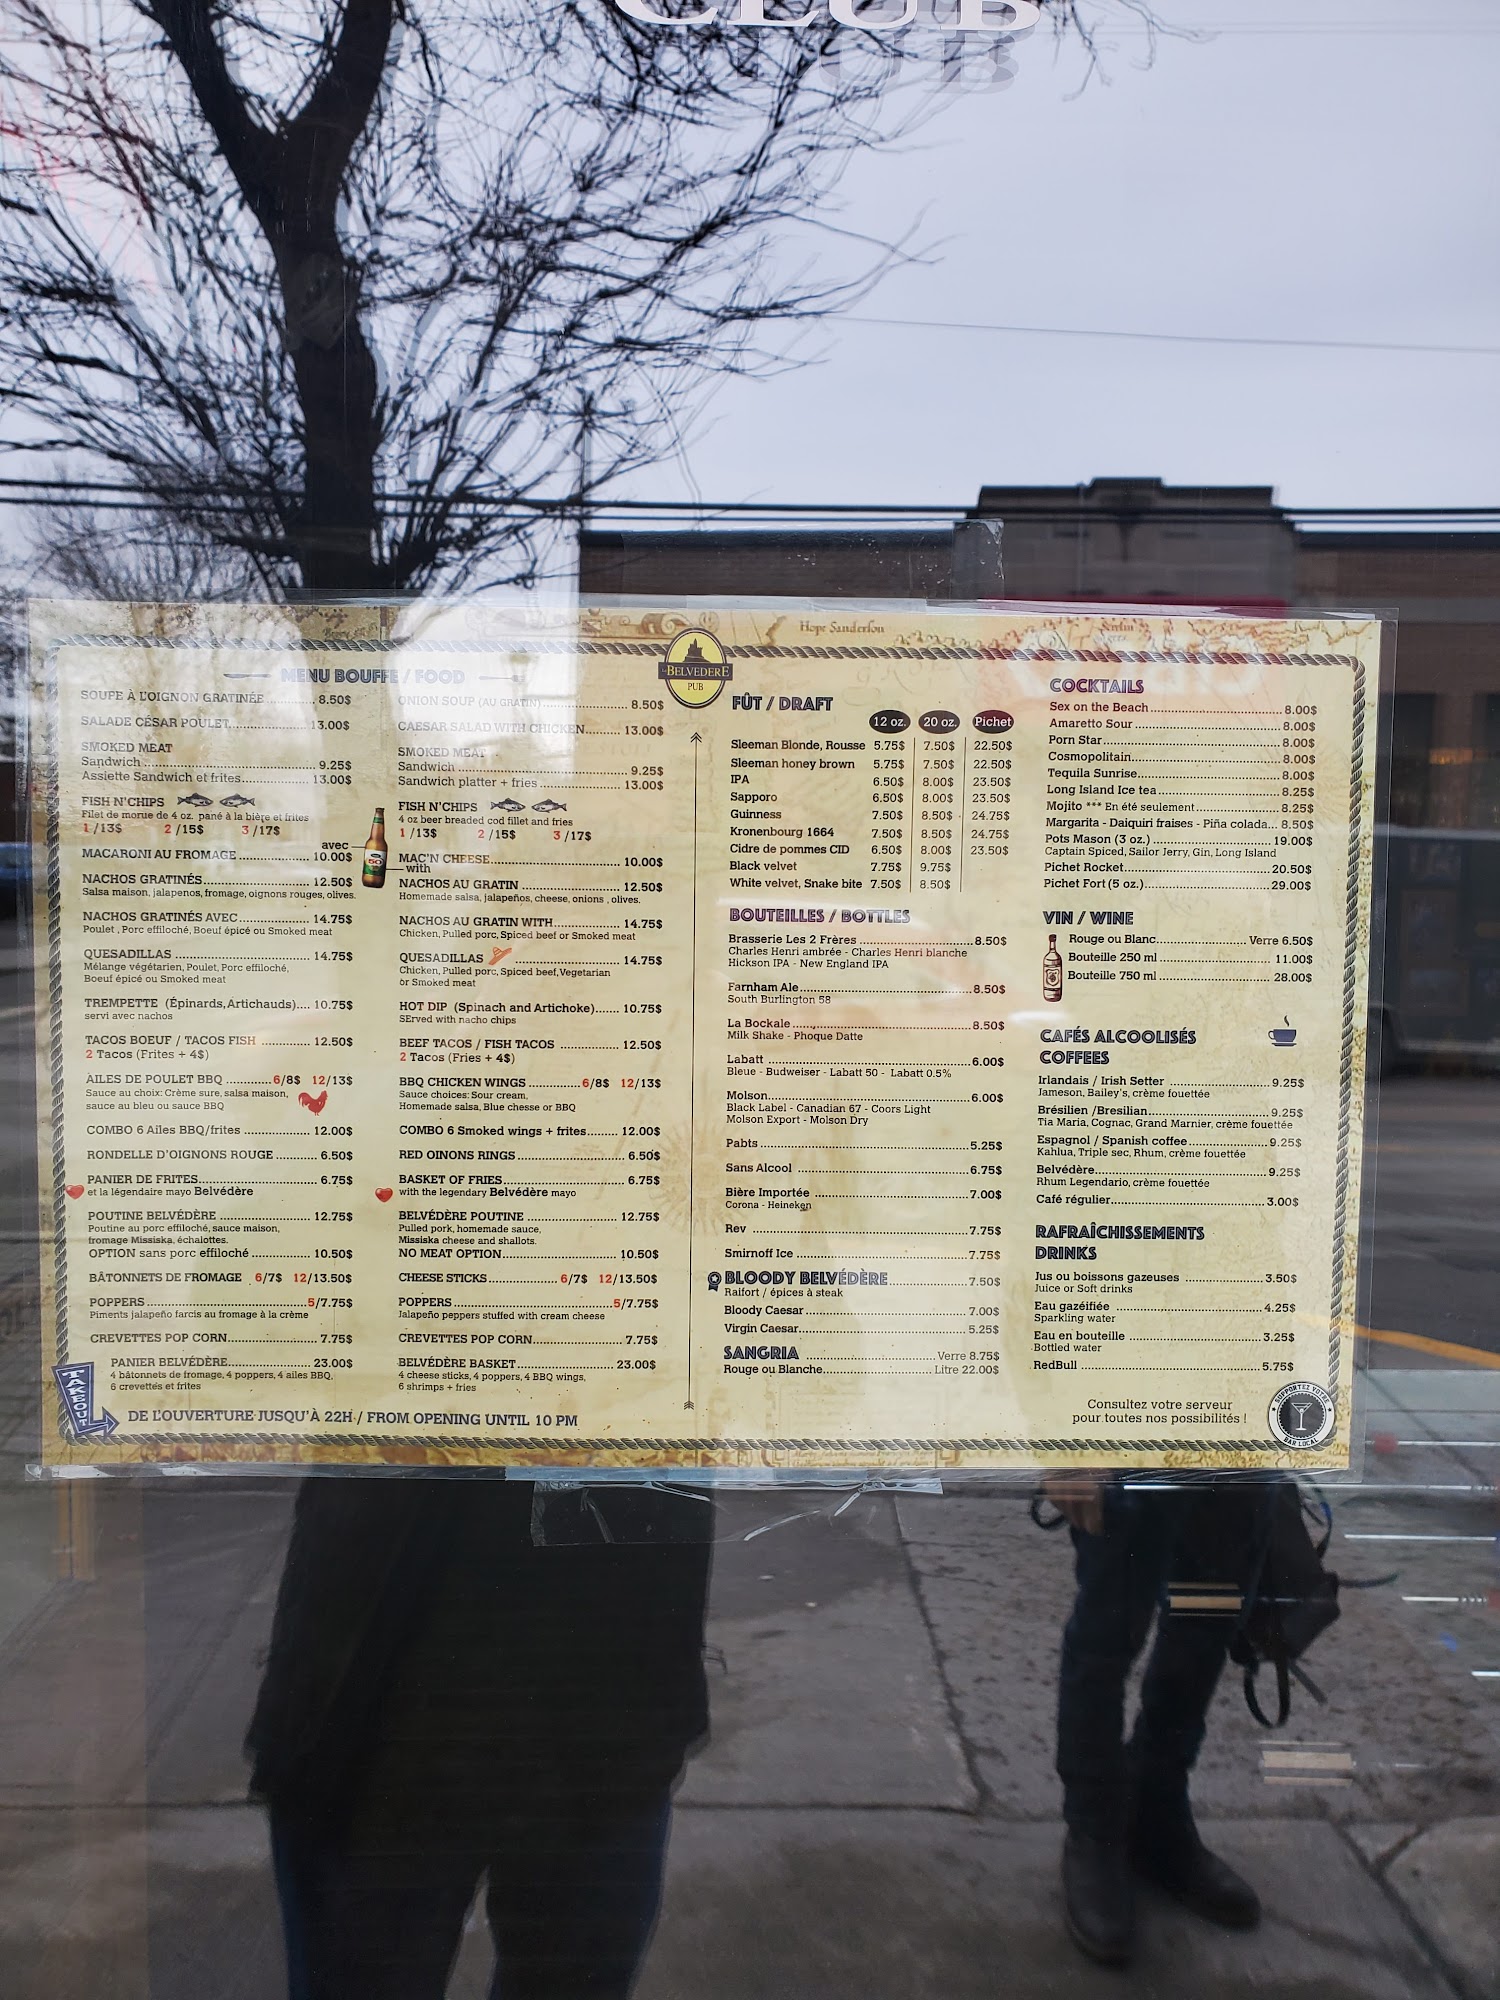 CLUB
Hope Sanderson
LE BELVEDERE
PUB
MENU BOUFFE / FOOD
SOUPE À L'OIGNON GRATINÉE 8.50$
SALADE CÉSAR POULET 13.00$
SMOKED MEAT
Sandwich 9.25$
Assiette Sandwich et frites 13.00$
FISH N'CHIPS
Filet de morue de 4 oz. pané à la bière et frites
1 /13$ 2 /15$ 3 /17$
avec
MACARONI AU FROMAGE 10.00$
NACHOS GRATINÉS 12.50$
Salsa maison, jalapenos, fromage, oignons rouges, olives.
NACHOS GRATINÉS AVEC 14.75$
Poulet , Porc effiloché, Boeuf épicé ou Smoked meat
QUESADILLAS 14.75$
Mélange végétarien, Poulet, Porc effiloché,
Boeuf épicé ou Smoked meat
TREMPETTE (Épinards, Artichauds).... 10.75$
servi avec nachos
TACOS BOEUF / TACOS FISH 12.50$
2 Tacos (Frites + 4$)
AILES DE POULET BBQ 6/8$ 12/13$
Sauce au choix: Crème sure, salsa maison,
sauce au bleu ou sauce BBQ
COMBO 6 Ailes BBQ/frites 12.00$
RONDELLE D'OIGNONS ROUGE 6.50$
PANIER DE FRITES 6.75$
et la légendaire mayo Belvédère
POUTINE BELVÉDÈRE 12.75$
Poutine au porc effiloché, sauce maison,
fromage Missiska, échalottes.
OPTION sans porc effiloché 10.50$
BÂTONNETS DE FROMAGE 6/7$ 12/13.50$
POPPERS 5/7.75$
Piments jalapeño farcis au fromage à la crème
CREVETTES POP CORN 7.75$
PANIER BELVÉDÈRE 23.00$
4 bâtonnets de fromage, 4 poppers, 4 ailes BBQ,
6 crevettes et frites
ONION SOUP (AU GRATIN) 8.50$
CAESAR SALAD WITH CHICKEN 13.00$
SMOKED MEAT
Sandwich 9.25$
Sandwich platter + fries 13.00$
FISH N'CHIPS
4 oz beer breaded cod fillet and fries
1 /13$ 2 /15$ 3 /17$
50
MAC'N CHEESE 10.00$
with
NACHOS AU GRATIN 12.50$
Homemade salsa, jalapeños, cheese, onions , olives.
NACHOS AU GRATIN WITH 14.75$
Chicken, Pulled porc, Spiced beef or Smoked meat
QUESADILLAS 14.75$
Chicken, Pulled porc, Spiced beef, Vegetarian
or Smoked meat
HOT DIP (Spinach and Artichoke) 10.75$
SErved with nacho chips
BEEF TACOS / FISH TACOS 12.50$
2 Tacos (Fries + 4$)
BBQ CHICKEN WINGS 6/8$ 12/13$
Sauce choices: Sour cream,
Homemade salsa, Blue chesse or BBQ
COMBO 6 Smoked wings + frites 12.00$
RED OINONS RINGS 6.50$
BASKET OF FRIES 6.75$
with the legendary Belvédère mayo
BELVÉDÈRE POUTINE 12.75$
Pulled pork, homemade sauce,
Missiska cheese and shallots.
NO MEAT OPTION 10.50$
CHEESE STICKS 6/7$ 12/13.50$
POPPERS 5/7.75$
Jalapeño peppers stuffed with cream cheese
CREVETTES POP CORN 7.75$
BELVÉDÈRE BASKET 23.00$
4 cheese sticks, 4 poppers, 4 BBQ wings,
6 shrimps + fries
TAKEOUT
DE L'OUVERTURE JUSQU'À 22H / FROM OPENING UNTIL 10 PM
FÛT / DRAFT
12 oz. 20 oz. Pichet
Sleeman Blonde, Rousse 5.75$ 7.50$ 22.50$
Sleeman honey brown 5.75$ 7.50$ 22.50$
IPA 6.50$ 8.00$ 23.50$
Sapporo 6.50$ 8.00$ 23.50$
Guinness 7.50$ 8.50$ 24.75$
Kronenbourg 1664 7.50$ 8.50$ 24.75$
Cidre de pommes CID 6.50$ 8.00$ 23.50$
Black velvet 7.75$ 9.75$
White velvet, Snake bite 7.50$ 8.50$
BOUTEILLES / BOTTLES
Brasserie Les 2 Frères 8.50$
Charles Henri ambrée - Charles Henri blanche
Hickson IPA - New England IPA
Farnham Ale 8.50$
South Burlington 58
La Bockale 8.50$
Milk Shake - Phoque Datte
Labatt 6.00$
Bleue - Budweiser - Labatt 50 - Labatt 0.5%
Molson 6.00$
Black Label - Canadian 67 - Coors Light
Molson Export - Molson Dry
Pabts 5.25$
Sans Alcool 6.75$
Bière Importée 7.00$
Corona - Heineken
Rev 7.75$
Smirnoff Ice 7.75$
BLOODY BELVÉDÈRE 7.50$
Raifort / épices à steak
Bloody Caesar 7.00$
Virgin Caesar 5.25$
SANGRIA Verre 8.75$
Rouge ou Blanche Litre 22.00$
COCKTAILS
Sex on the Beach 8.00$
Amaretto Sour 8.00$
Porn Star 8.00$
Cosmopolitain 8.00$
Tequila Sunrise 8.00$
Long Island Ice tea 8.25$
Mojito *** En été seulement 8.25$
Margarita - Daiquiri fraises - Piña colada... 8.50$
Pots Mason (3 oz.) 19.00$
Captain Spiced, Sailor Jerry, Gin, Long Island
Pichet Rocket 20.50$
Pichet Fort (5 oz.) 29.00$
VIN / WINE
Rouge ou Blanc Verre 6.50$
Bouteille 250 ml 11.00$
Bouteille 750 ml 28.00$
CAFÉS ALCOOLISÉS
COFFEES
Irlandais / Irish Setter 9.25$
Jameson, Bailey's, crème fouettée
Brésilien /Bresilian 9.25$
Tia Maria, Cognac, Grand Marnier, crème fouettée
Espagnol / Spanish coffee 9.25$
Kahlua, Triple sec, Rhum, crème fouettée
Belvédère 9.25$
Rhum Legendario, crème fouettée
Café régulier 3.00$
RAFRAÎCHISSEMENTS
DRINKS
Jus ou boissons gazeuses 3.50$
Juice or Soft drinks
Eau gazéifiée 4.25$
Sparkling water
Eau en bouteille 3.25$
Bottled water
RedBull 5.75$
Consultez votre serveur
pour toutes nos possibilités !
SUPPORTEZ VOTRE
BAR LOCAL